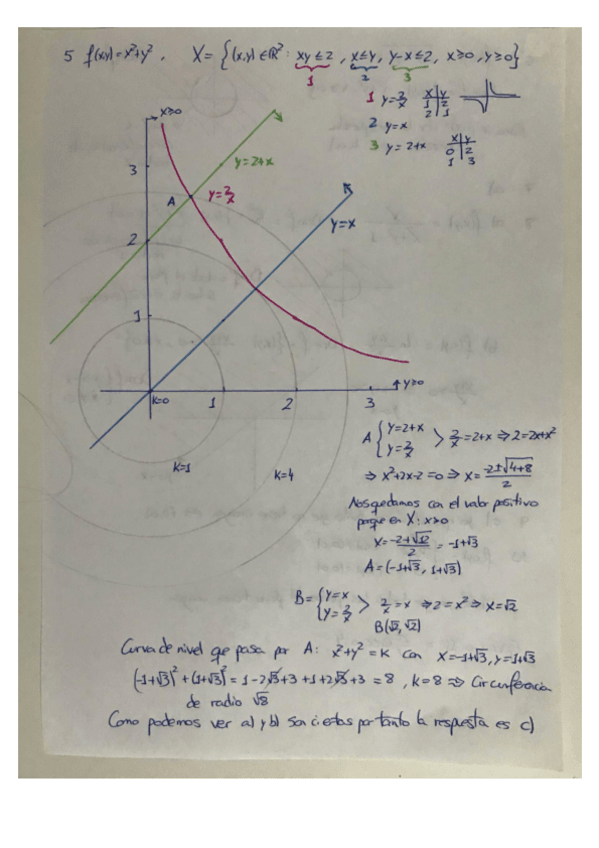 5 f(x,y)=x²+y², X={(x,y)∈ℝ²: xy≤2, x≤y, y-x≤2, x≥0, y≥0}
1 2 3
1 y=2/x x|y 1|2 2|1
2 y=x
3 y=2+x x|y 0|2 1|3
x≥0
y=2+x
3
A
y=2/x
y=x
2
1
y≥0
k=0 1 2 3
k=1 k=4
A { y=2+x y=2/x > 2/x=2+x ⇒ 2=2x+x²
⇒ x²+2x-2=0 ⇒ x=-2±√4+8/2
Nos quedamos con el valor positivo
porque en X: x≥0
x=-2+√12/2=-1+√3
A=(-1+√3, 1+√3)
B={ y=x y=2/x > 2/x=x ⇒ 2=x² ⇒ x=√2
B(√2,√2)
Curva de nivel que pasa por A: x²+y²=k con x=-1+√3, y=1+√3
(-1+√3)²+(1+√3)²=1-2√3+3+1+2√3+3=8, k=8 ⇒ Circunferencia
de radio √8
Como podemos ver a) y b) son ciertas por tanto la respuesta es c)